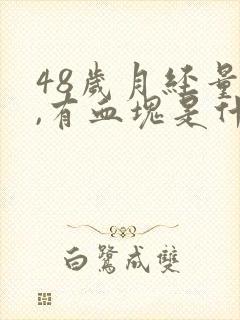 48歲月經量
,有血塊是什
白鷺成雙